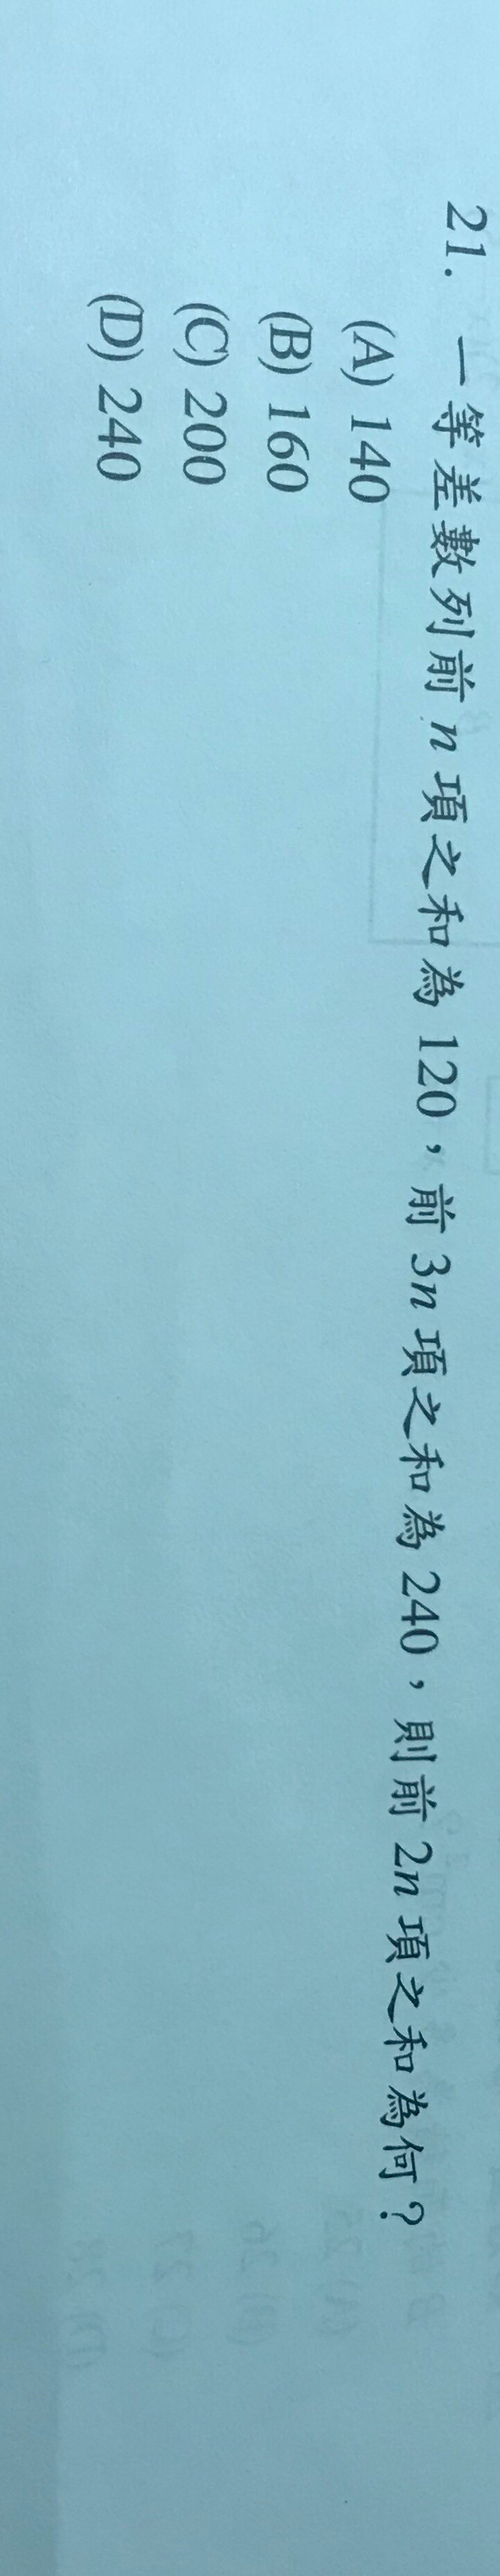 21. 一等差數列前 n 項之和為 120，前 3n 項之和為 240，則前 2n 項之和為何？
(A) 140
(B) 160
(C) 200
(D) 240